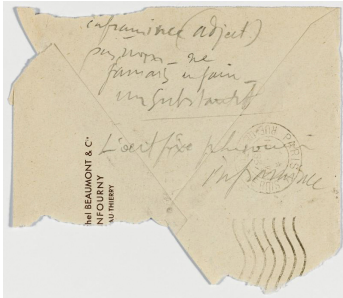 inframince (adject.)
pas nom – ne
jamais en faire
un substantif
L'oeil fixe phénomène
inframince
hel BEAUMONT & Cie
NFOURNY
AU THIERRY